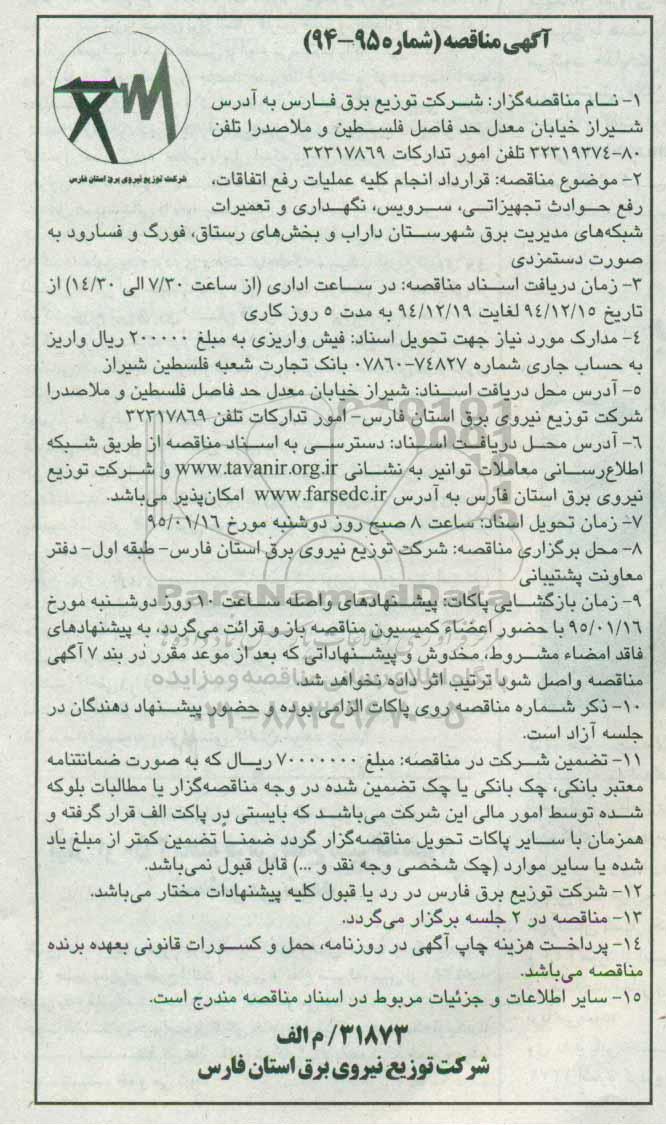 آگهی مناقصه (شماره ۹۵-۹۴)
شرکت توزیع نیروی برق استان فارس
۱- نام مناقصه‌گزار: شرکت توزیع برق فارس به آدرس
شیراز خیابان معدل حد فاصل فلسطین و ملاصدرا تلفن
۸۰-۳۲۳۱۹۳۷۴ تلفن امور تدارکات ۳۲۳۱۷۸۶۹
۲- موضوع مناقصه: قرارداد انجام کلیه عملیات رفع اتفاقات،
رفع حوادث تجهیزاتی، سرویس، نگهداری و تعمیرات
شبکه‌های مدیریت برق شهرستان داراب و بخش‌های رستاق، فورگ و فسارود به
صورت دستمزدی
۳- زمان دریافت اسناد مناقصه: در ساعت اداری (از ساعت ۷/۳۰ الی ۱۴/۳۰) از
تاریخ ۹۴/۱۲/۱۵ لغایت ۹۴/۱۲/۱۹ به مدت ۵ روز کاری
۴- مدارک مورد نیاز جهت تحویل اسناد: فیش واریزی به مبلغ ۲۰۰۰۰۰ ریال واریز
به حساب جاری شماره ۷۴۸۲۷-۰۷۸۶۰ بانک تجارت شعبه فلسطین شیراز
۵- آدرس محل دریافت اسناد: شیراز خیابان معدل حد فاصل فلسطین و ملاصدرا
شرکت توزیع نیروی برق استان فارس- امور تدارکات تلفن ۳۲۳۱۷۸۶۹
۶- آدرس محل دریافت اسناد: دسترسی به اسناد مناقصه از طریق شبکه
اطلاع‌رسانی معاملات توانیر به نشانی www.tavanir.org.ir و شرکت توزیع
نیروی برق استان فارس به آدرس www.farsedc.ir امکان‌پذیر می‌باشد.
۷- زمان تحویل اسناد: ساعت ۸ صبح روز دوشنبه مورخ ۹۵/۰۱/۱۶
۸- محل برگزاری مناقصه: شرکت توزیع نیروی برق استان فارس- طبقه اول- دفتر
معاونت پشتیبانی
۹- زمان بازگشایی پاکات: پیشنهادهای واصله ساعت ۱۰ روز دوشنبه مورخ
۹۵/۰۱/۱۶ با حضور اعضاء کمیسیون مناقصه باز و قرائت می‌گردد، به پیشنهادهای
فاقد امضاء مشروط، مخدوش و پیشنهاداتی که بعد از موعد مقرر در بند ۷ آگهی
مناقصه واصل شود ترتیب اثر داده نخواهد شد.
۱۰- ذکر شماره مناقصه روی پاکات الزامی بوده و حضور پیشنهاد دهندگان در
جلسه آزاد است.
۱۱- تضمین شرکت در مناقصه: مبلغ ۷۰۰۰۰۰۰۰ ریال که به صورت ضمانتنامه
معتبر بانکی، چک بانکی یا چک تضمین شده در وجه مناقصه‌گزار یا مطالبات بلوکه
شده توسط امور مالی این شرکت می‌باشد که بایستی در پاکت الف قرار گرفته و
همزمان با سایر پاکات تحویل مناقصه‌گزار گردد ضمناً تضمین کمتر از مبلغ یاد
شده یا سایر موارد (چک شخصی وجه نقد و ...) قابل قبول نمی‌باشد.
۱۲- شرکت توزیع برق فارس در رد یا قبول کلیه پیشنهادات مختار می‌باشد.
۱۳- مناقصه در ۲ جلسه برگزار می‌گردد.
۱۴- پرداخت هزینه چاپ آگهی در روزنامه، حمل و کسورات قانونی بعهده برنده
مناقصه می‌باشد.
۱۵- سایر اطلاعات و جزئیات مربوط در اسناد مناقصه مندرج است.
۳۱۸۷۳/ م الف
شرکت توزیع نیروی برق استان فارس
ParsNamadData
پایگاه اطلاع رسانی مناقصه و مزایده
۰۲۱-۸۸۳۴۹۶۷۰-۵